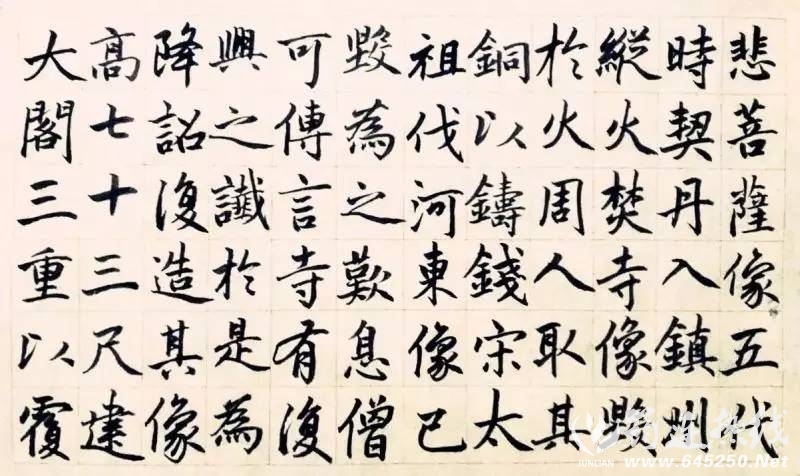 悲菩薩像五代
時契丹入鎮州
縱火焚寺像毀
於火周人取其
銅以鑄錢宋太
祖伐河東像已
毀為之歎息僧
可傳言寺有復
興之讖於是為
降詔復造其像
高七十三尺建
大閣三重以覆
www.645250.Net